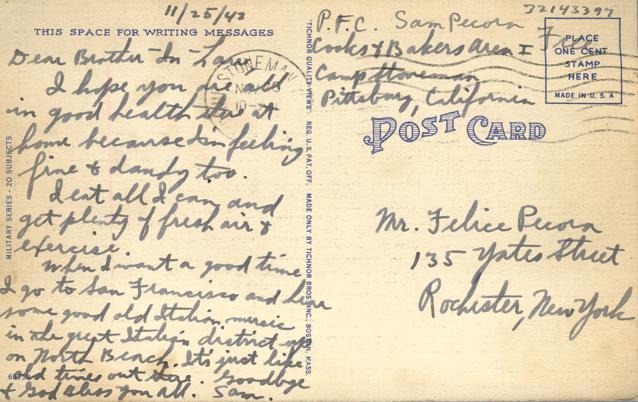 11/25/43
THIS SPACE FOR WRITING MESSAGES
Dear Brother-In-Law
I hope you are all
in good health there at
home because I'm feeling
fine & dandy too.
I eat all I can and
get plenty of fresh air &
exercise.
When I want a good time
I go to San Francisco and hear
some good old Italian music
in the great Italian district up
on North Beach. It's just like
old times out there. Goodbye
& God bless you all. Sam.
MILITARY SERIES - 20 SUBJECTS
STONEMAN
TICHNOR QUALITY VIEWS REG. U.S. PAT. OFF. MADE ONLY BY TICHNOR BROS. INC., BOSTON, MASS.
32143397
P.F.C. Sam Pecora
Cooks & Bakers Area I
Camp Stoneman
Pittsburg, California
Free
PLACE
ONE CENT
STAMP
HERE
MADE IN U.S.A
POST CARD
Mr. Felice Pecora
135 Yates Street
Rochester, New York